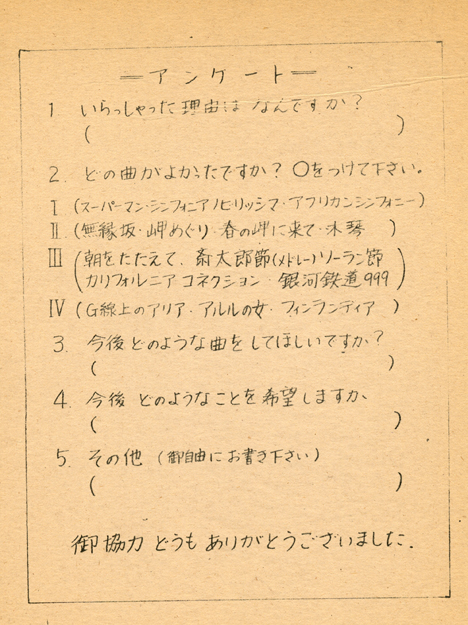 =アンケート=
1 いらっしゃった理由は なんですか?
( )
2. どの曲がよかったですか? ○をつけて下さい。
I (スーパーマン・シンフォニア ノビリッシマ・アフリカンシンフォニー)
II (無縁坂・岬めぐり・春の岬に来て・木琴)
III (朝をたたえて、斎太郎節(メドレー)ソーラン節
カリフォルニア コネクション・銀河鉄道999)
IV (G線上のアリア・アルルの女・フィンランディア )
3. 今後どのような曲をしてほしいですか?
( )
4. 今後 どのようなことを希望しますか、
( )
5. その他 (御自由にお書き下さい)
( )
御協力 どうも ありがとうございました.